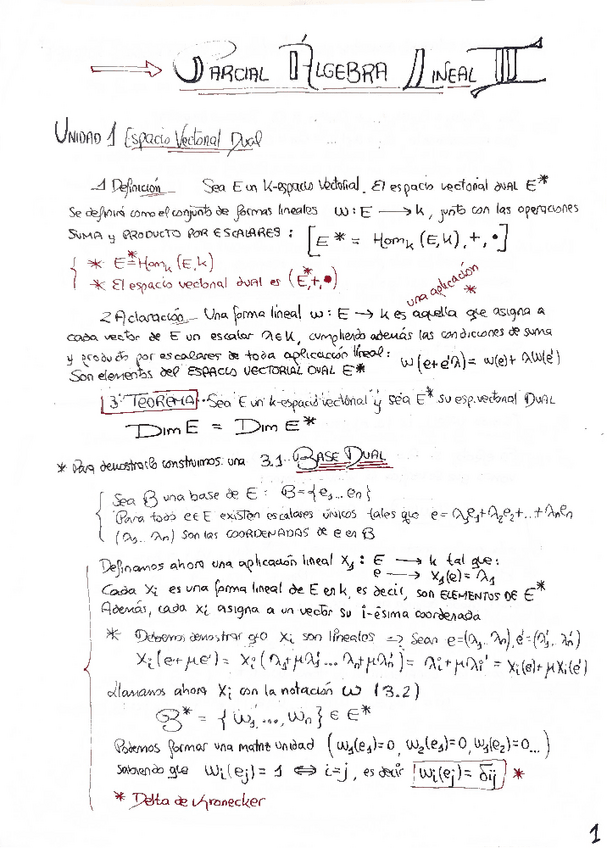 PARCIAL ÁLGEBRA LINEAL III
UNIDAD 1 Espacio Vectorial Dual
1 Definición_ Sea E un K-espacio vectorial. El espacio vectorial DUAL E*
Se definirá como el conjunto de formas lineales w: E → k, junto con las operaciones
SUMA y PRODUCTO POR ESCALARES: [E* = Homk (E, k), +, •]
* E* = Homk (E, k)
* El espacio vectorial dual es (E*, +, •)
una aplicación
*
2 Aclaración_ Una forma lineal w: E → k es aquella que asigna a
cada vector de E un escalar λ∈k, cumpliendo además las condiciones de suma
y producto por escalares de toda aplicación lineal: w(e+e'λ) = w(e) + λw(e')
Son elementos del ESPACIO VECTORIAL DUAL E*
3 TEOREMA Sea E un k-espacio vectorial y sea E* su esp. vectorial DUAL
Dim E = Dim E*
* Para demostrarlo construimos una 3.1 BASE DUAL
Sea B una base de E: B = {e1 ... en}
Para todo e∈E existen escalares únicos tales que e = λ1e1 + λ2e2 + ... + λnen
(λ1 ... λn) son las COORDENADAS de e en B
Definamos ahora una aplicación lineal X1: E → k tal que:
e → X1(e) = λ1
Cada Xi es una forma lineal de E en k, es decir, son ELEMENTOS DE E*
Además, cada Xi asigna a un vector su i-ésima coordenada
* Debemos demostrar que Xi son lineales ⇒ Sean e = (λ1 ... λn), e' = (λ1' ... λn')
Xi(e+μe') = Xi(λ1+μλ1' ... λn+μλn') = λi + μλi' = Xi(e) + μXi(e')
Llamamos ahora Xi con la notación w (3.2)
B* = {w1, ..., wn} ∈ E*
Podemos formar una matriz unidad (w1(e1)=0, w2(e1)=0, w1(e2)=0...)
sabiendo que wi(ej) = 1 ⇔ i=j, es decir wi(ej) = δij *
* Delta de Kronecker
1